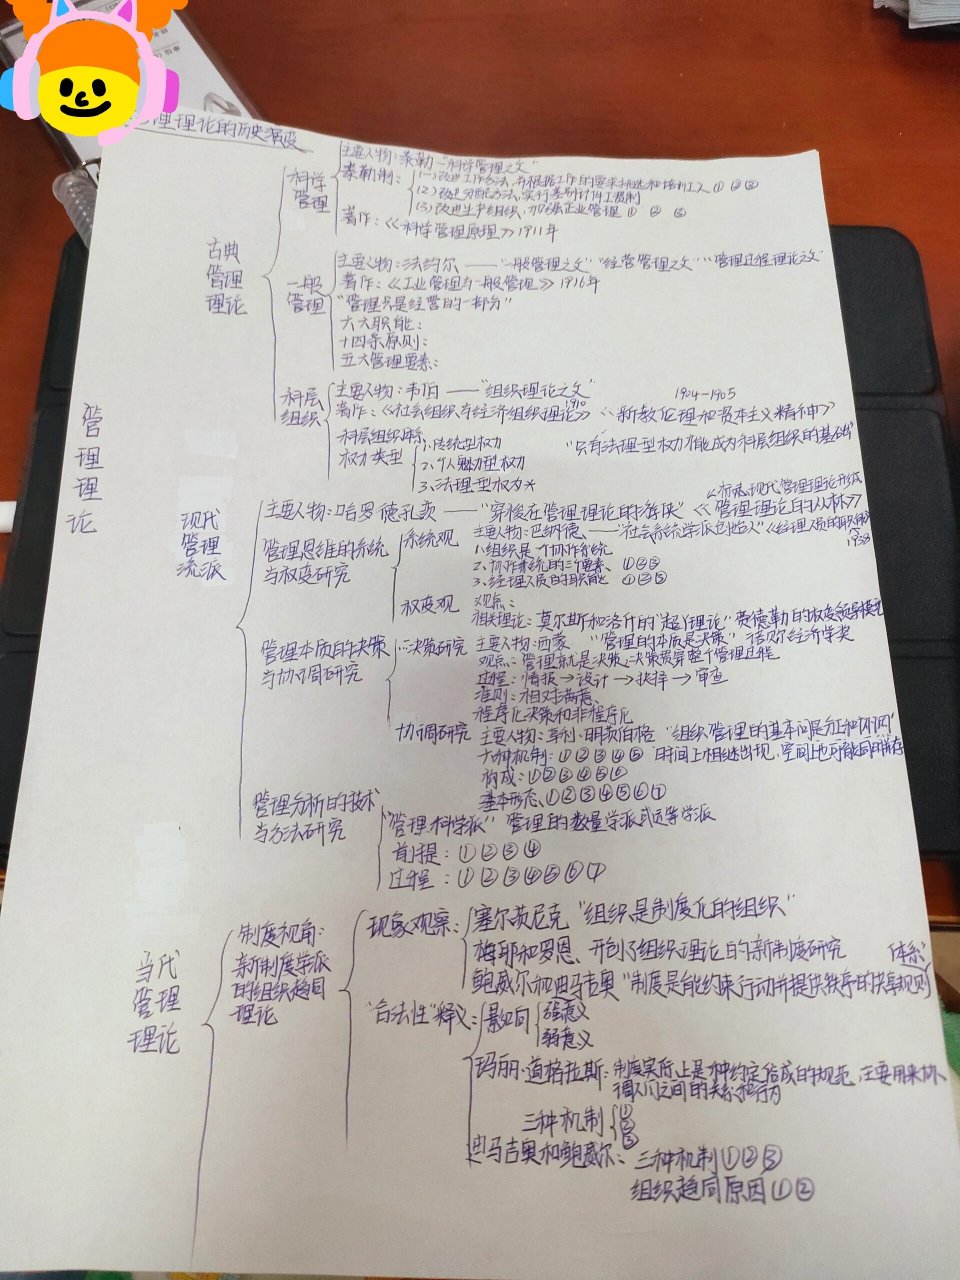 理理论的历史演变
管理理论
古典管理理论
科学管理
主要人物:泰勒—"科学管理之父"
泰勒制:
(一)改进工作方法,并根据工作的要求挑选和培训工人 ① ② ③
(2)改进分配方法,实行差别计件工资制
(3)改进生产组织,加强企业管理 ① ② ③
著作:《科学管理原理》1911年
一般管理
主要人物:法约尔——"一般管理之父" "经营管理之父" "管理过程理论之父"
著作:《工业管理与一般管理》1916年
"管理只是经营的一部分"
六大职能:
十四条原则:
五大管理要素:
科层组织
主要人物:韦伯——"组织理论之父"
1910 1904-1905
著作:《社会组织与经济组织理论》《新教伦理和资本主义精神》
科层组织
权力类型
1、传统型权力
2、个人魅力型权力
3、法理型权力*
"只有法理型权力才能成为科层组织的基础"
现代管理流派
现代管理理论形成
主要人物:哈罗德孔茨——"穿梭在管理理论的游侠"《管理理论的丛林》
管理思维的系统与权变研究
系统观
主要人物:巴纳德——"社会系统学派创始人"《经理人员的职能》
1938
1.组织是一个协作系统
2、协作系统的三个要素、①②③
3、经理人员的职能 ①②③
权变观
观点:
相关理论:莫尔斯和洛什的"超Y理论" 费德勒的权变领导模型
管理本质的决策与协调研究
决策研究
主要人物:西蒙 "管理的本质是决策" 诺贝尔经济学奖
观点:管理就是决策,决策贯穿整个管理过程
过程:情报→设计→抉择→审查
准则:相对满意、
程序化决策和非程序化
协调研究
主要人物:亨利·明茨伯格 "组织管理的基本问题分工和协调"
六种机制:①②③④⑤ 时间上相继出现,空间上也可能同时并存
构成:①②③④⑤⑥
基本形态、①②③④⑤⑥⑦
管理分析的技术与方法研究
"管理科学派" 管理的数量学派或运筹学派
前提:①②③④
过程:①②③④⑤⑥⑦
当代管理理论
制度视角:
新制度学派的组织趋同理论
现象观察:
塞尔茨尼克 "组织是制度化的组织"
梅耶和罗恩、开创了组织理论的新制度研究
鲍威尔和迪马吉奥 "制度是能约束行动并提供秩序的共享规则体系"
"合法性"释义:
最初
强意义
弱意义
玛丽·道格拉斯:制度实际上是一种约定俗成的规范,主要用来协
调人们之间的关系和行为
三种机制 ① ② ③
迪马吉奥和鲍威尔:三种机制①②③
组织趋同原因①②